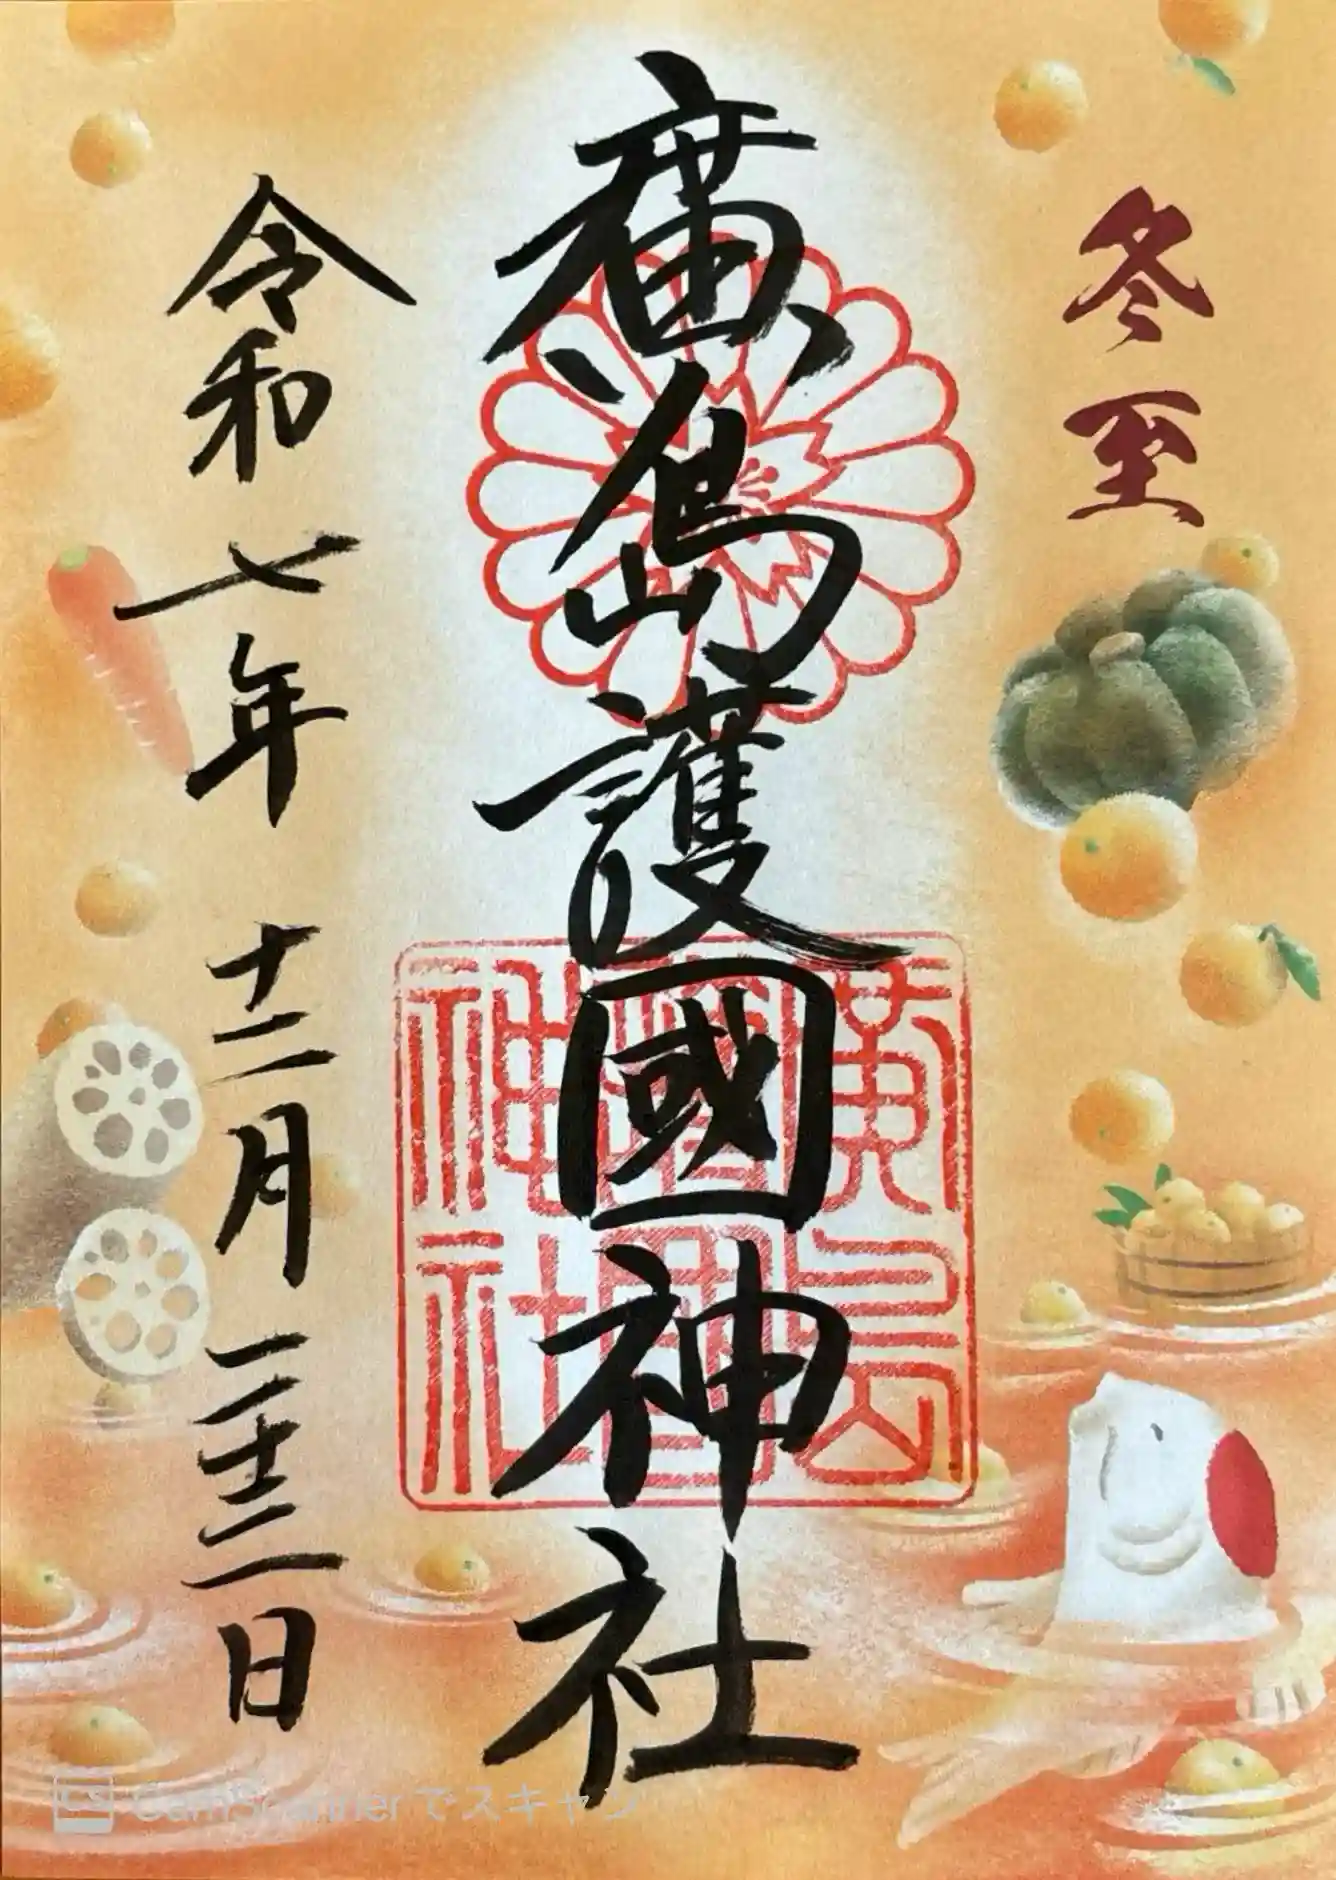 冬至
廣島護國神社
廣島護國神社
令和七年 十二月 二十二日
CamScannerでスキャン